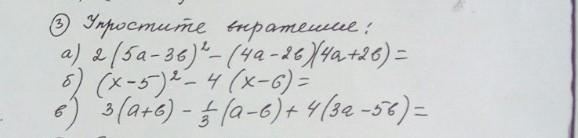 ③ Упростите выражение:
а) 2(5a-3в)²-(4a-2в)(4a+2в)=
б) (x-5)²-4(x-6)=
в) 3(a+в)-⅓(a-в)+4(3a-5в)=